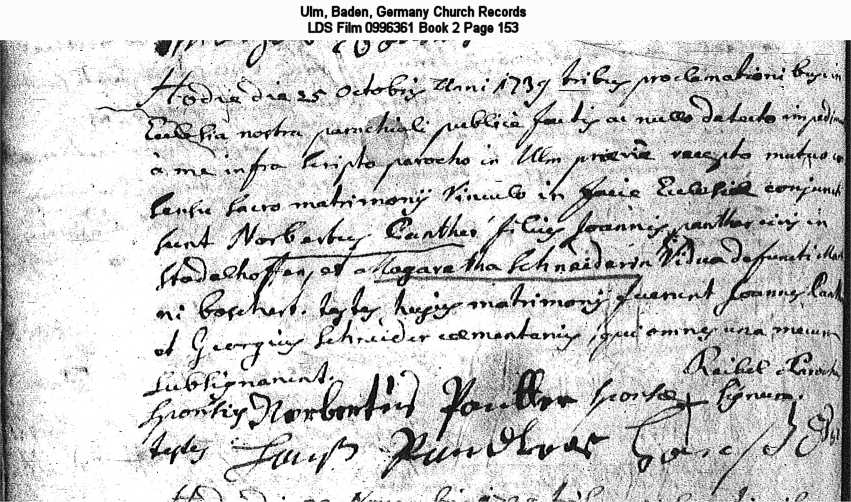 Ulm, Baden, Germany Church Records
LDS Film 0996361 Book 2 Page 153
Hodie die 25 octobris Anni 1739 tribus proclamationibus in
Ecclesia nostra parochiali publice factis ac nullo detecto impedim
à me infra scripto parocho in Ulm recepto mutuo con
sensu sacro matrimonij Vinculo in facie Ecclesiæ conjuncti
sunt Norbertus Panther filius Joannis panther civis in
stadelhoffen, et Magaretha Schneiderin Vidua defuncti
ni boschert. testes hujus matrimonij fuerunt Joannes Panth
et Georgius Schneider cementarius, qui omnes una mecum
subsignarunt. Reibel Parochus
sponsus Norbertus Panther sponsæ + signum.
testes
Hodie